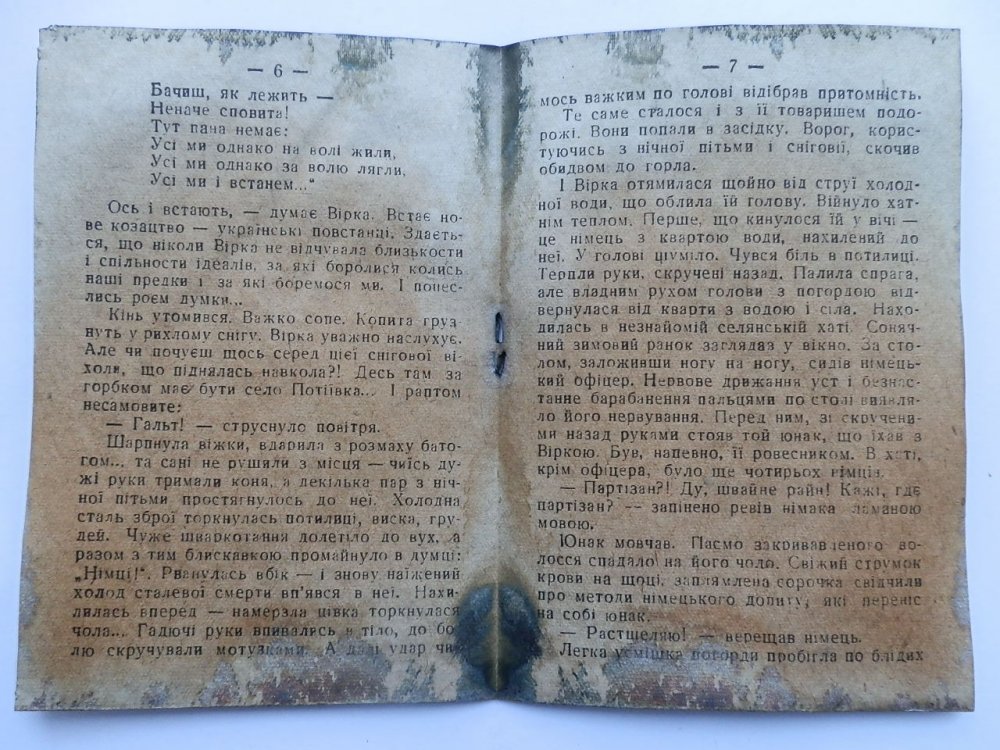 — 6 —
Бачиш, як лежить —
Неначе сповита!
Тут пана немає:
Усі ми однако на волі жили,
Усі ми однако за волю лягли,
Усі ми і встанем...“
Ось і встають, — думає Вірка. Встає но-
ве козацтво — українські повстанці. Здаєть-
ся, що ніколи Вірка не відчувала близькости
і спільности ідеалів, за які боролися колись
наші предки і за які боремося ми. І понес-
лись роєм думки...
Кінь утомився. Важко сопе. Копита груз-
нуть у рихлому снігу. Вірка уважно наслухує.
Але чи почуєш щось серед цієї снігової ві-
холи, що піднялась навкола?! Десь там за
горбком має бути село Потіївка... І раптом
несамовите:
— Гальт! — струснуло повітря.
Шарпнула віжки, вдарила з розмаху бато-
гом... та сані не рушили з місця — чиїсь ду-
жі руки тримали коня, а декілька пар з ніч-
ної пітьми простягнулось до неї. Холодна
сталь зброї торкнулась потилиці, виска, гру-
дей. Чуже шваркотання долетіло до вух, а
разом з тим блискавкою промайнуло в думці:
„Німці!“. Рванулась вбік — і знову наїжений
холод сталевої смерти вп'явся в неї. Нахи-
лилась вперед — намерзла цівка торкнулася
чола... Гадючі руки впивались в тіло, до бо-
лю скручували мотузками. А далі удар чи-
— 7 —
мось важким по голові відібрав притомність.
Те саме сталося і з її товаришем подо-
рожі. Вони попали в засідку. Ворог, корис-
туючись з нічної пітьми і сніговії, скочив
обидвом до горла.
І Вірка отямилася щойно від струї холод-
ної води, що облила їй голову. Війнуло хат-
нім теплом. Перше, що кинулося їй у вічі —
це німець з квартою води, нахилений до
неї. У голові шуміло. Чувся біль в потилиці.
Терпли руки, скручені назад. Палила спрага,
але владним рухом голови з погордою від-
вернулася від кварти з водою і сіла. Нахо-
дилась в незнайомій селянській хаті. Соняч-
ний зимовий ранок заглядав у вікно. За сто-
лом, заложивши ногу на ногу, сидів німець-
кий офіцер. Нервове дрижання уст і безнас-
танне барабанення пальцями по столі виявля-
ло його нервування. Перед ним, зі скручени-
ми назад руками стояв той юнак, що їхав з
Віркою. Був, напевно, її ровесником. В хаті,
крім офіцера, було ще чотирьох німців.
— Партізан?! Ду, швайне райн! Кажі, где
партізан? -- запінено ревів німака ламаною
мовою.
Юнак мовчав. Пасмо закривавленого во-
лосся спадало на його чоло. Свіжий струмок
крови на щоці, заплямлена сорочка свідчили
про методи німецького допиту, які переніс
на собі юнак.
— Растщеляю! — верещав німець.
Легка усмішка погорди пробігла по блідих